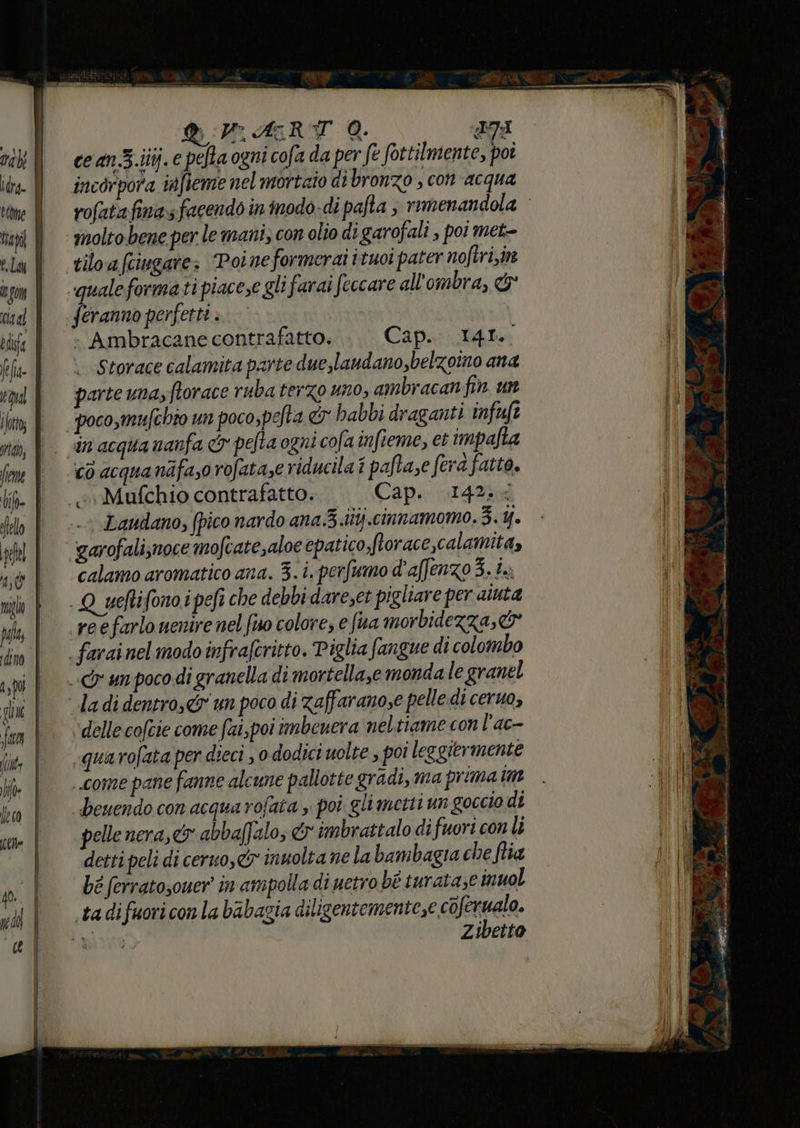 Q V A R T O.
ce an.ʒ.iiij. e peſta ogni coſa da per ſe ſottilmente, poi
incórpora inſieme nel mortaio di bronzo, con acqua
roſata fina, facendo in modo di paſta, rimenandola
molto bene per le mani, con olio di garofali, poi met-
tilo a ſciugare; Poi ne formerai i tuoi pater noſtri, in
quale forma ti piace, e gli farai ſeccare all'ombra, &
ſeranno perfetti.
Ambracane contrafatto. Cap. 141.
Storace calamita parte due, laudano, belzoino ana
parte una, ſtorace ruba terzo uno, ambracan fin un
poco, muſchio un poco, peſta & habbi draganti infuſi
in acqua nanfa & peſta ogni coſa inſieme, et impaſta
cō acqua nāfa, o roſata, e riducila ī paſta, e ſerà fatto.
Muſchio contrafatto. Cap. 142.
Laudano, ſpico nardo ana.ʒ.iiij. cinnamomo. ʒ. ij.
garofali, noce moſcate, aloe epatico, ſtorace, calamita,
calamo aromatico ana. ʒ. i. perfumo d'aſſenzo ʒ. i.
Queſti ſono i peſi che debbi dare, et pigliare per aiuta
re e farlo uenire nel ſuo colore, e ſua morbidezza, &
farai nel modo infraſcritto. Piglia ſangue di colombo
& un poco di granella di mortella, e monda le granel
la di dentro, & un poco di zaffarano, e pelle di ceruo,
delle coſcie come ſai, poi imbeuera nel tiame con l'ac-
qua roſata per dieci, o dodici uolte, poi leggiermente
come pane fanne alcune pallotte grādi, ma prima im
beuendo con acqua roſata, poi gli metti un goccio di
pelle nera, & abbaſſalo, & imbrattalo di fuori con li
detti peli di ceruo, & inuolta ne la bambagia che ſtia
bē ſerrato, ouer' in ampolla di uetro bē turata, e inuol
ta di fuori con la bābagia diligentemente, e cōſerualo.
Zibetto